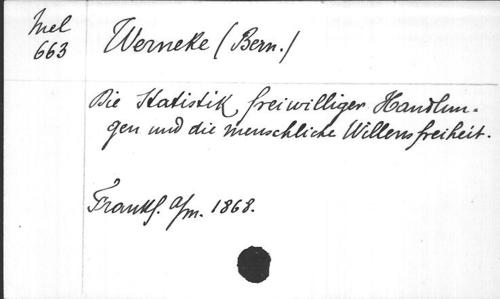 Mel
663
Werneke (Bern.)
Die Statistik freiwilliger Handlun-
gen und die menschliche Willensfreiheit.
Frankf. a/m. 1868.